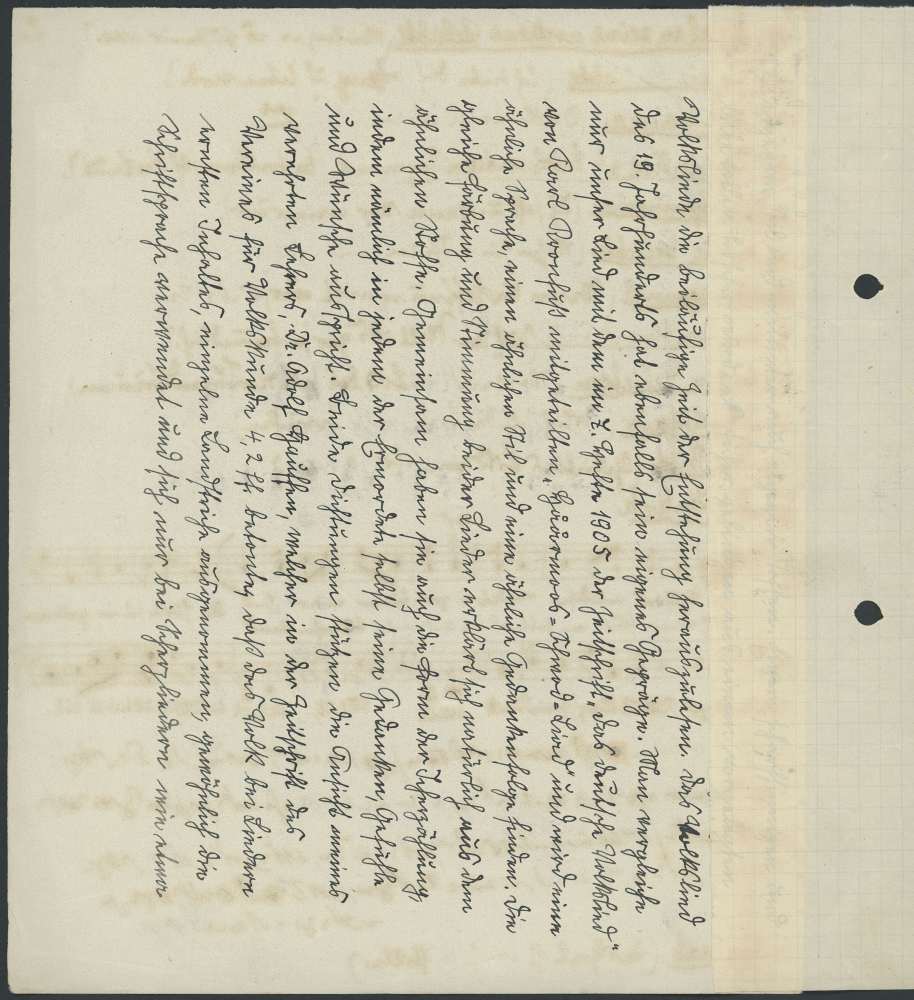 Volksliede die beiläufige Zeit der Entstehung herauszulesen. Das Volkslied
des 19. Jahrhunderts hat ebenfalls sein eigenes Gepräge. Man vergleiche
nur unser Lied mit dem im 7. Hefte 1905 der Zeitschrift „das deutsche Volkslied"
von Karl Kronfuß mitgeteilten „ und wird eine
ähnliche Sprache, einen ähnlichen Stil und eine ähnliche Gedankenfolge finden. Die
gleiche Färbung und Stimmung beider Lieder erklärt sich natürlich aus dem
ähnlichen Stoffe. Gemeinsam haben sie auch die Form der Icherzählung,
indem nämlich in jedem der Ermordete selbst seine Gedanken, Gefühle
und Wünsche ausspricht. Beide Dichtungen stützen die Ansicht meines
verehrten Lehrers, Dr. Adolf Hauffen, welcher in der Zeitschrift des
Vereines für Volkskunde 4, 2 ff. betont, daß das Volk bei Liedern
ernsten Inhaltes, einzelne Landstriche ausgenommen, gewöhnlich die
Schriftsprache verwendet und sich nur bei Scherzliedern wie etwa